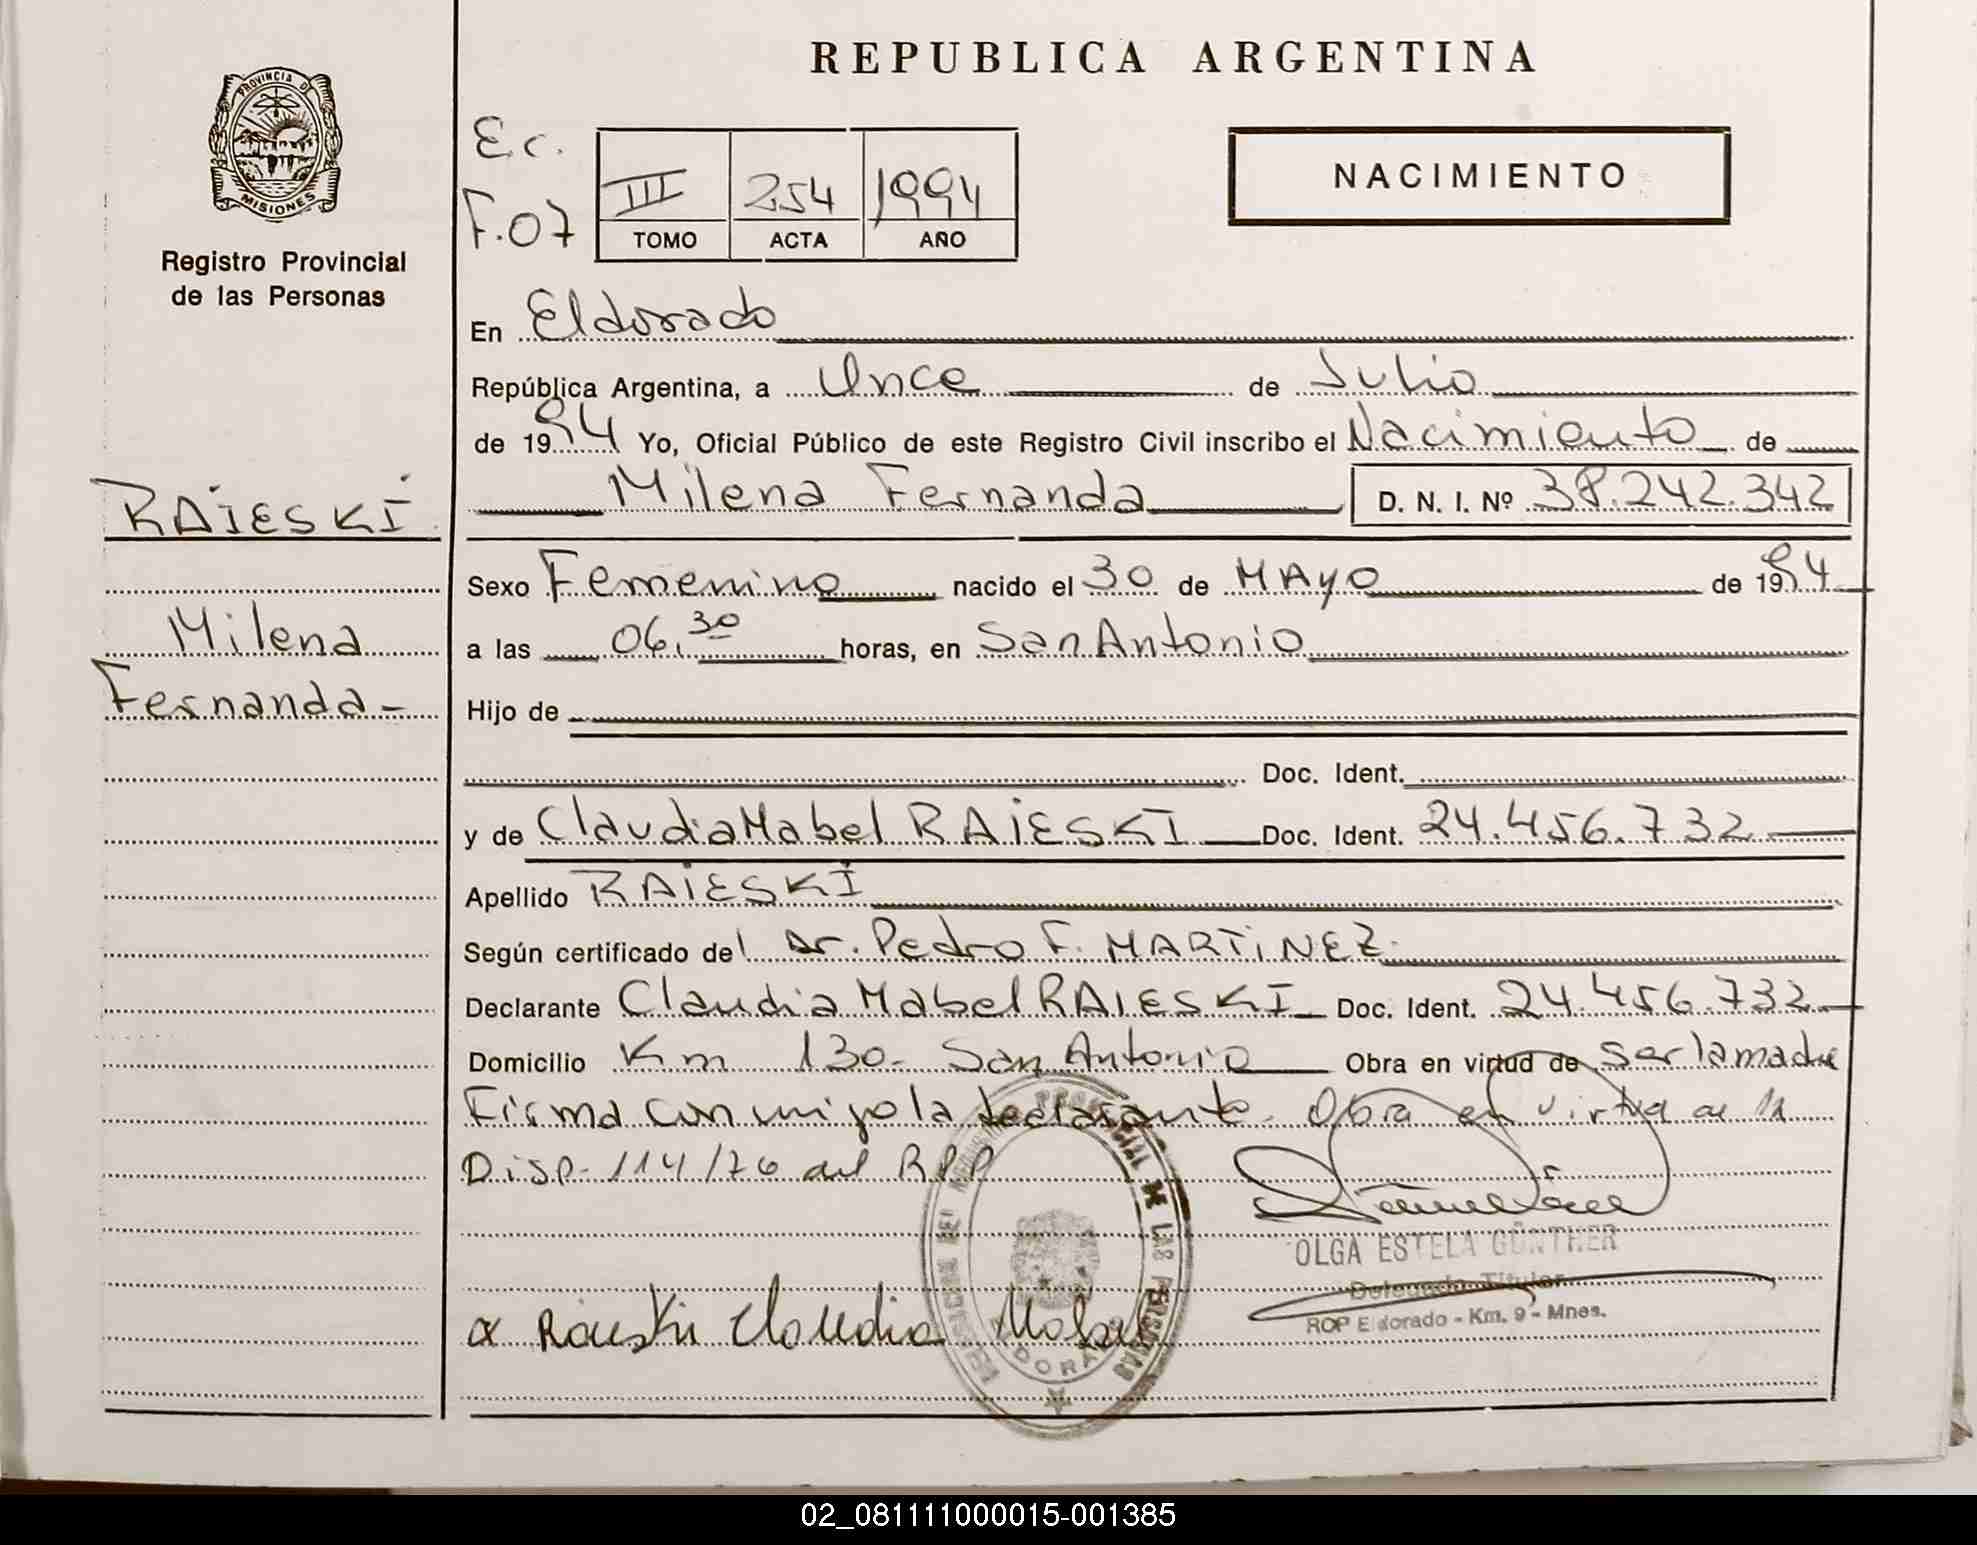 REPUBLICA ARGENTINA
PROVINCIA DE
MISIONES
Registro Provincial
de las Personas
E.C.
F.07
III 254 1994
TOMO ACTA AÑO
NACIMIENTO
En Eldorado
República Argentina, a Once de Julio
de 1994 Yo, Oficial Público de este Registro Civil inscribo el Nacimiento de
Milena Fernanda D. N. I. Nº 38.242.342
RAIESKI
Milena
Fernanda-
Sexo Femenino nacido el 30 de MAYO de 1994
a las 06,30 horas, en San Antonio
Hijo de
Doc. Ident.
y de Claudia Mabel RAIESKI Doc. Ident. 24.456.732
Apellido RAIESKI
Según certificado del Dr. Pedro F. MARTINEZ
Declarante Claudia Mabel RAIESKI Doc. Ident. 24.456.732
Domicilio Km 130- San Antonio Obra en virtud de ser la madre
Firma conmigo la declarante. Obra en virtud de la
Disp. 114/76 del RPP
OLGA ESTELA GÜNTHER
Delegada Titular
ROP Eldorado - Km. 9 - Mnes.
x Raieski Claudia Mabel
02_081111000015-001385